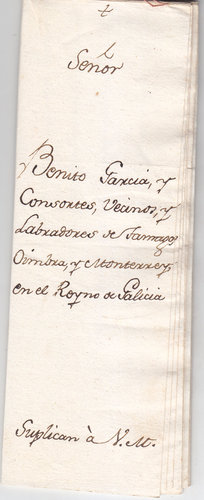 Señor
Benito Garcia, y
Consortes, Vecinos, y
Labradores de Tamagos
Oimbra, y Monterrey
en el Reyno de Galicia
Suplican à V. M.